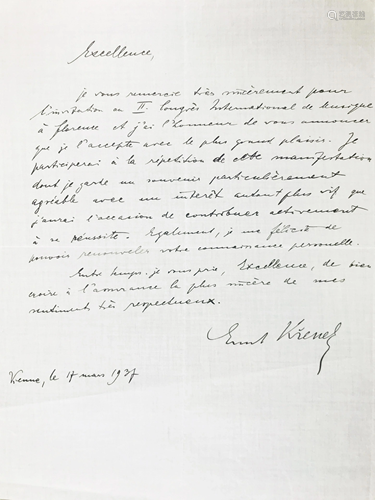 Excellence,
je vous remercie très sincèrement pour
l'invitation au IIe Congrès International de Musique
à Florence et j'ai l'honneur de vous annoncer
que je l'accepte avec le plus grand plaisir. Je
participerai à la répétition de cette manifestation
dont je garde un souvenir particulièrement
agréable avec un intérêt autant plus vif que
j'aurai l'occasion de contribuer activement
à sa réussite. Egalement, je me félicite de
pouvoir renouveler votre connaissance personnelle.
Entre temps je vous prie, Excellence, de bien
croire à l'assurance la plus sincère de mes
sentiments très respectueux.
Ernst Křenek
Vienne, le 17 mars 1937